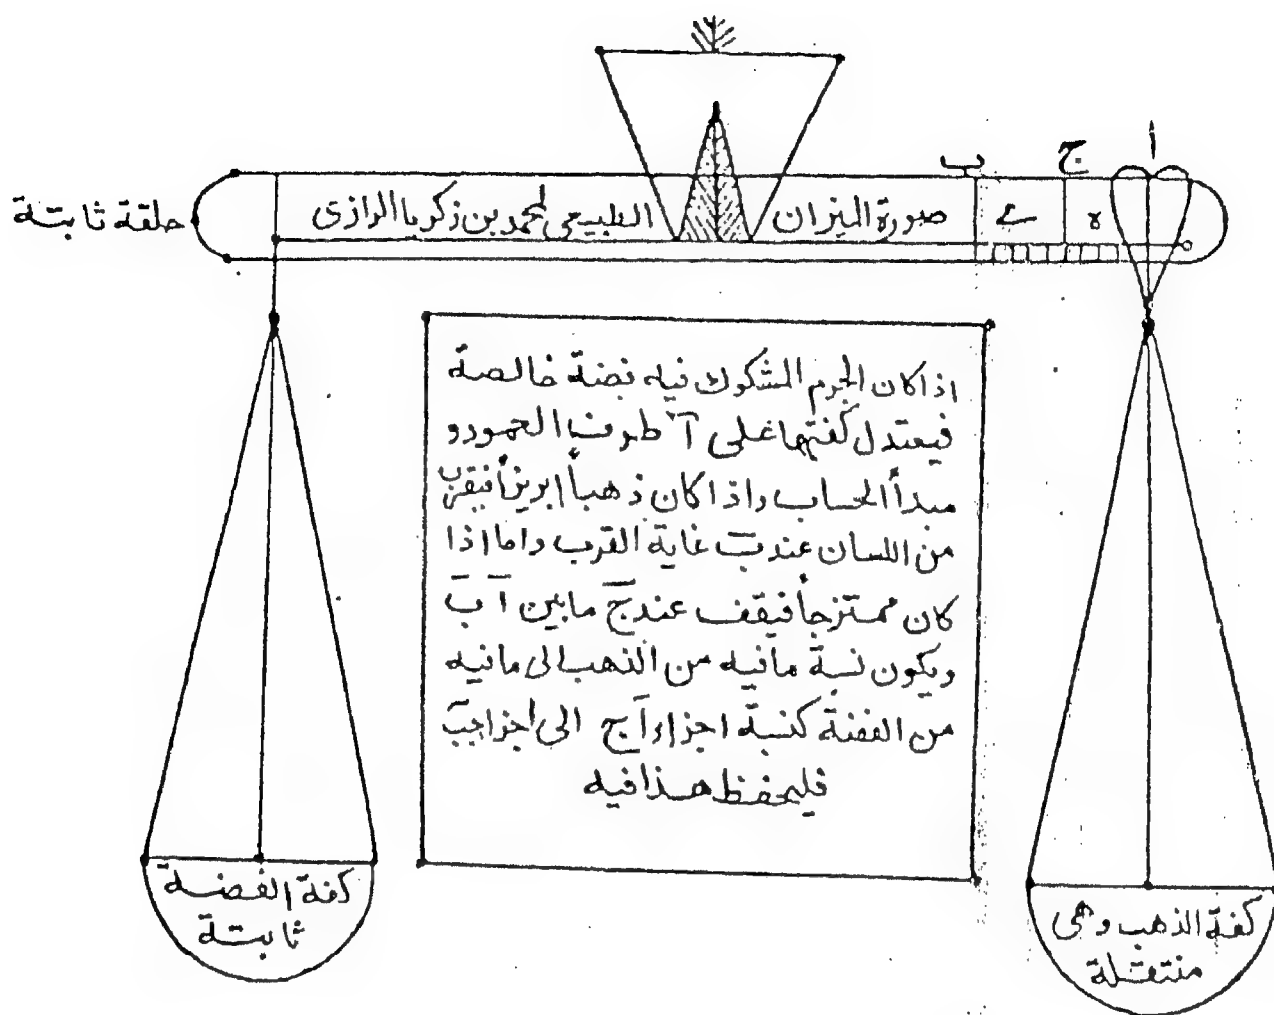 أ
ج
ب
صورة الميزان الطبيعي لمحمد بن زكريا الرازي
ه
حلقة ثابتة
اذا كان الجرم المشكوك فيه فضة خالصة
فيعتدل كفتها على آ طرف العمود و
مبدأ الحساب واذا كان ذهباً ابريزاً فيقرب
من اللسان عند ب غاية القرب واما اذا
كان ممتزجاً فيقف عند ج مابين آ ب
ويكون نسبة مافيه من الذهب الى مافيه
من الفضة كنسبة اجزاء آج الى اجزا جب
فليحفظ هذا فيه
كفة الفضة
ثابتة
كفة الذهب وهى
منتقلة